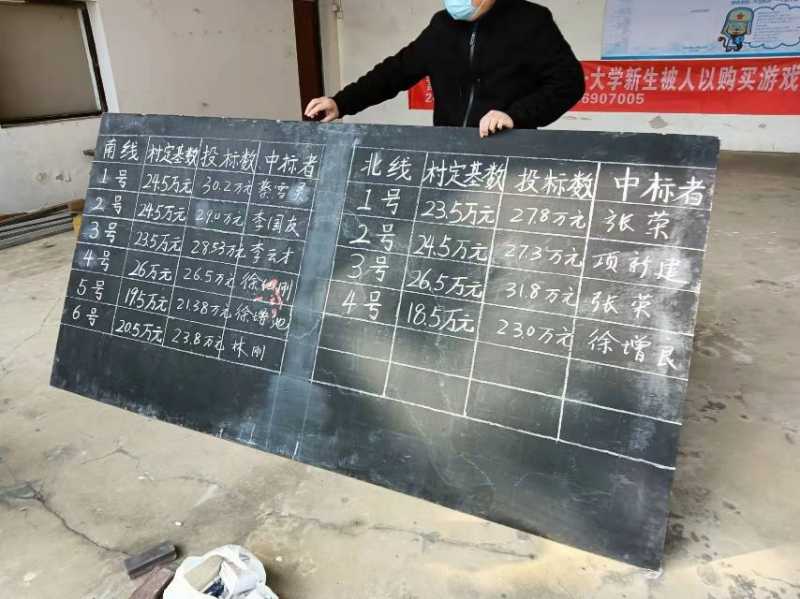 大学新生被人以购买游戏
6907005
南线 村定基数 投标数 中标者
1号 24.5万元 30.2万元
2号 24.5万元 29.0万元 李国友
3号 23.5万元 28.53万元 李云才
4号 26万元 26.5万元 徐 刚
5号 19.5万元 21.38万元 徐增池
6号 20.5万元 23.8万元 林刚
北线 村定基数 投标数 中标者
1号 23.5万元 27.8万元 张荣
2号 24.5万元 27.3万元 项新建
3号 26.5万元 31.8万元 张荣
4号 18.5万元 23.0万元 徐增良